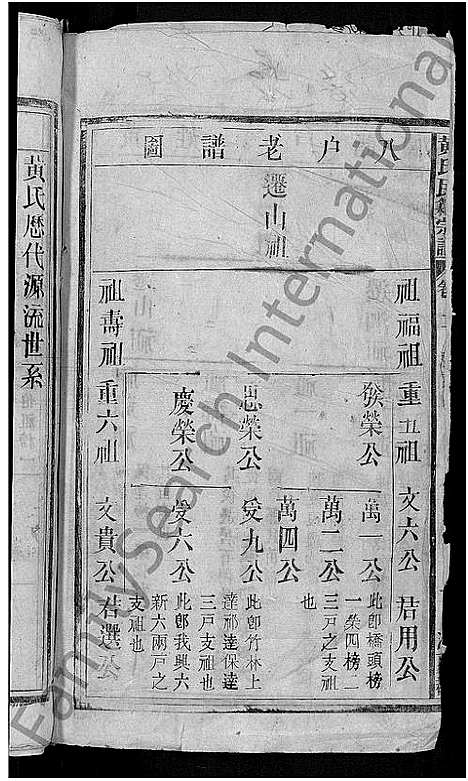 八戶老譜圖
遷山祖
祖福祖 重五祖 文六公 君用公
發榮公 萬一公 此即橋頭榜
一榮四榜一
萬二公 三戶之支祖
也
萬四公
思榮公 受九公 此即竹林上
達祁達保達
三戶支祖也
慶榮公 受六公 此即我興六
新六兩戶之
支祖也
祖壽祖 重六祖 文貴公 君選公
黃氏歷代源流世系
FamilySearch International